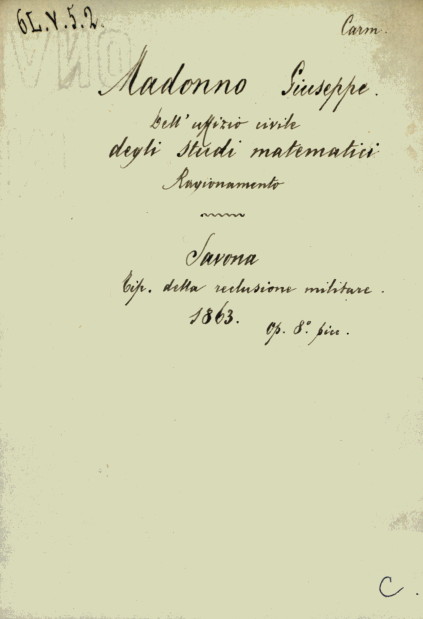 6L.V.5.2.
Carm.
Madonno Giuseppe.
Dell' uffizio civile
degli studi matematici
Ragionamento
Savona
Tip. della reclusione militare.
1863.
Op. 8° picc.
C.